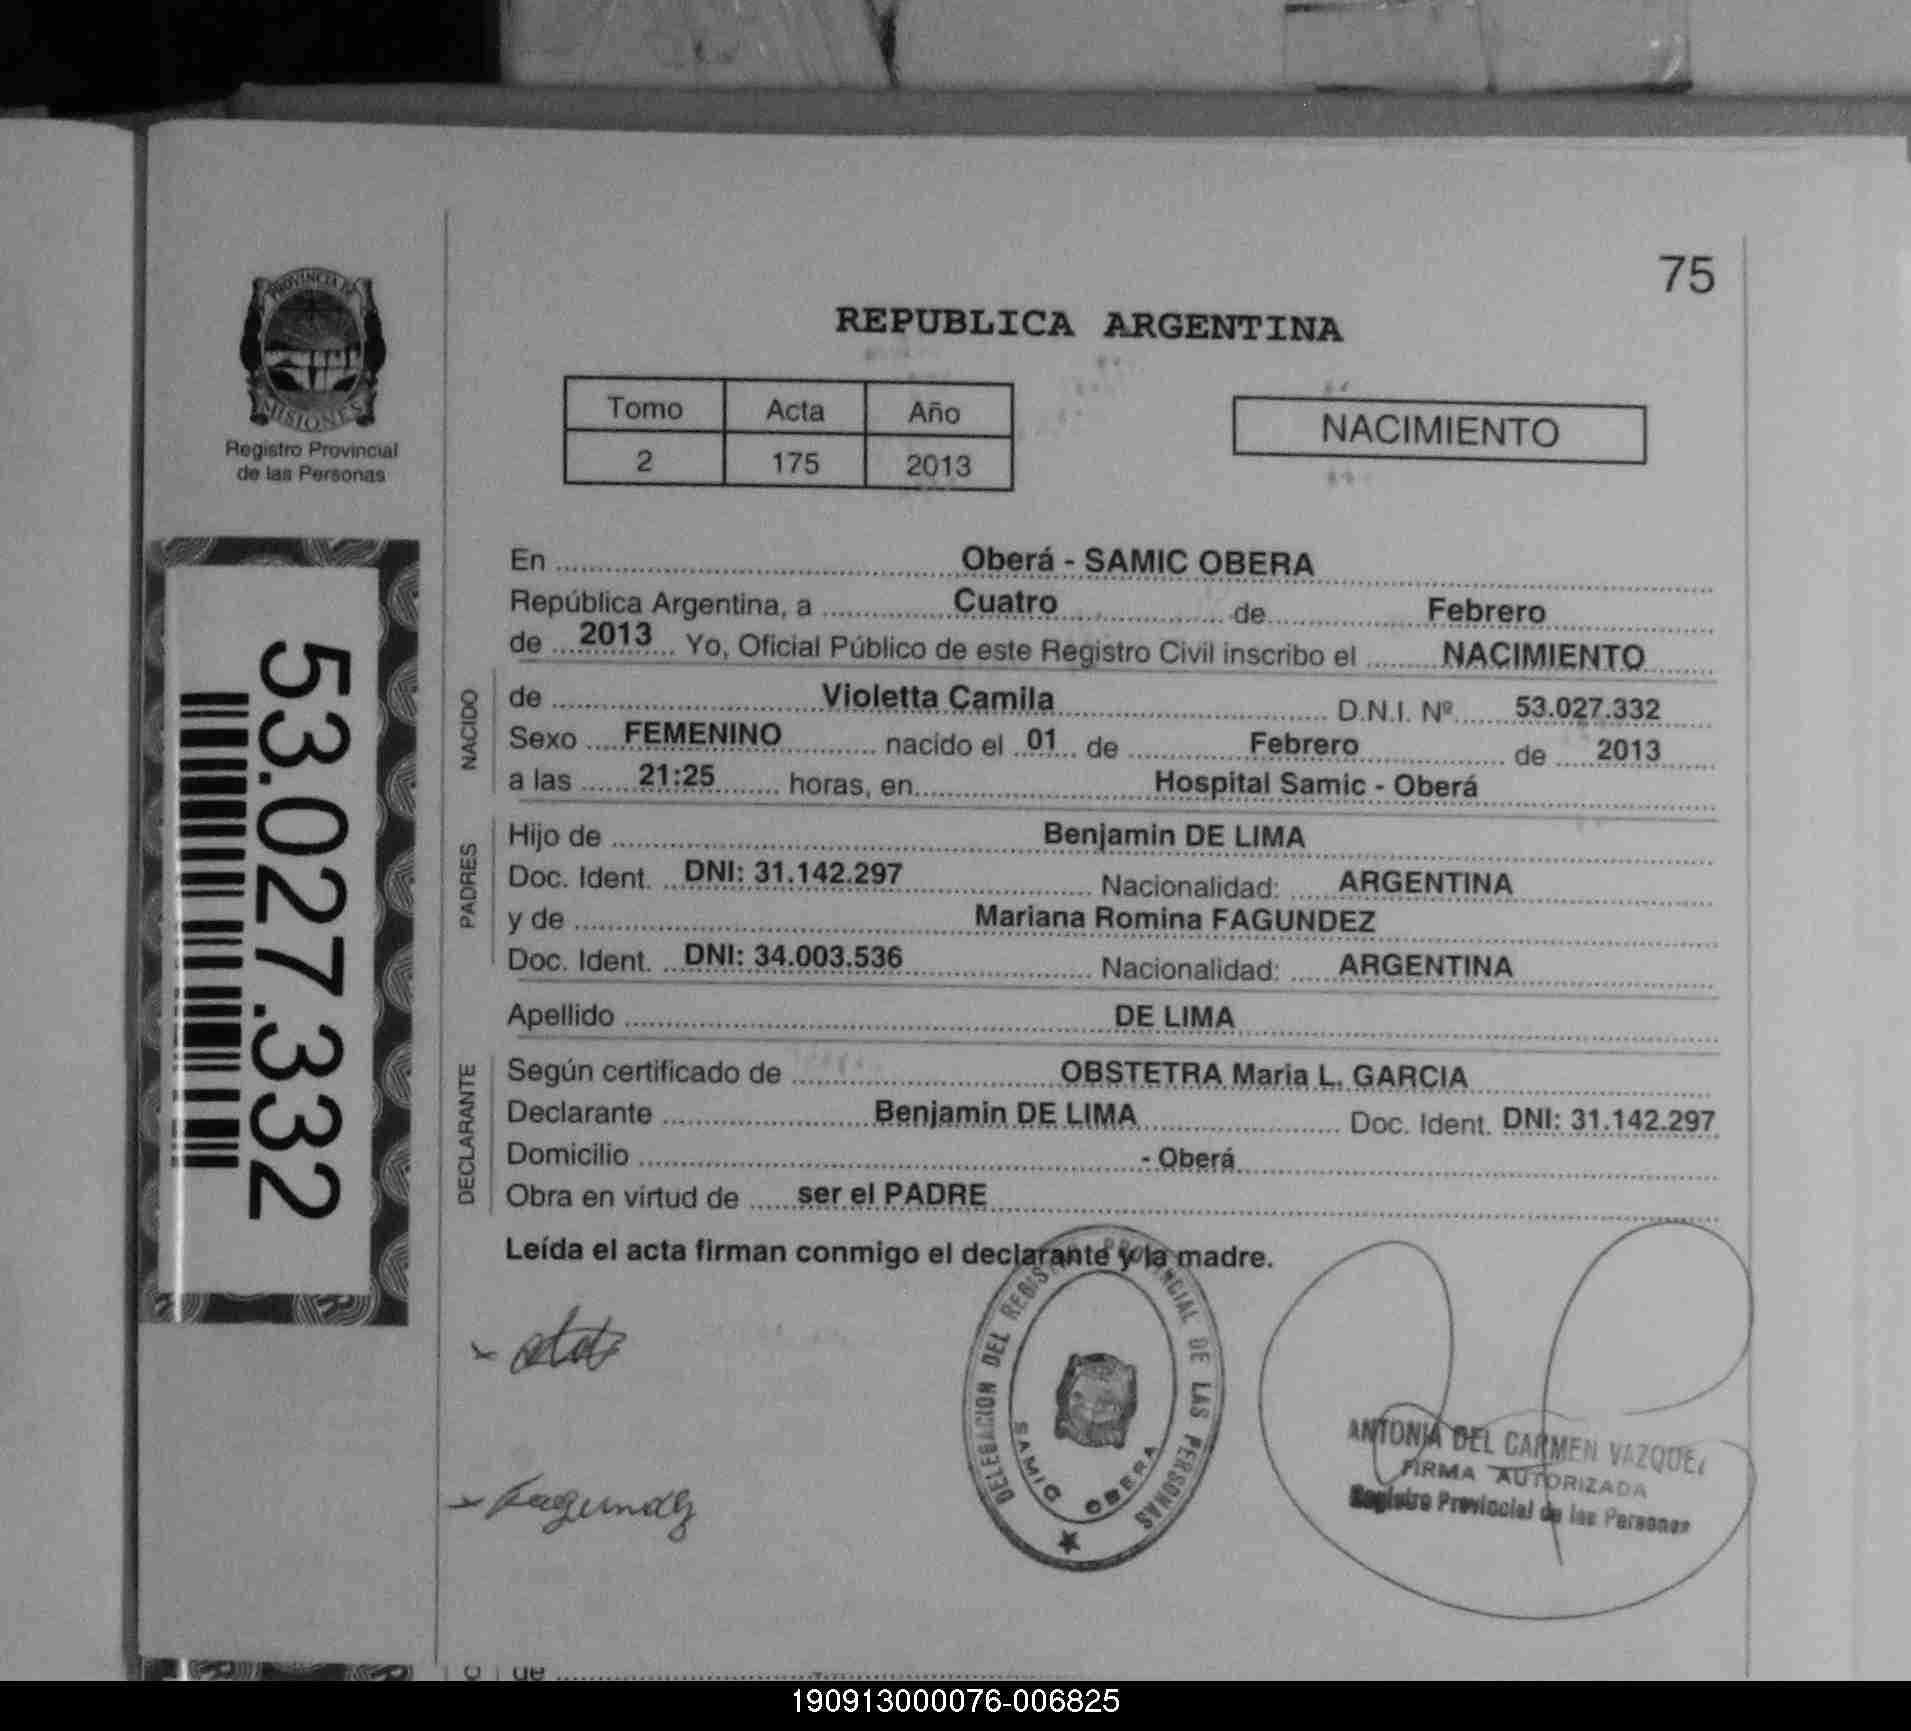 75
PROVINCIA DE
MISIONES
Registro Provincial
de las Personas
REPUBLICA ARGENTINA
Tomo Acta Año
2 175 2013
NACIMIENTO
53.027.332
En Oberá - SAMIC OBERA
República Argentina, a Cuatro de Febrero
de 2013 Yo, Oficial Público de este Registro Civil inscribo el NACIMIENTO
NACIDO
de Violetta Camila D.N.I. Nº 53.027.332
Sexo FEMENINO nacido el 01 de Febrero de 2013
a las 21:25 horas, en Hospital Samic - Oberá
PADRES
Hijo de Benjamin DE LIMA
Doc. Ident. DNI: 31.142.297 Nacionalidad: ARGENTINA
y de Mariana Romina FAGUNDEZ
Doc. Ident. DNI: 34.003.536 Nacionalidad: ARGENTINA
Apellido DE LIMA
DECLARANTE
Según certificado de OBSTETRA Maria L. GARCIA
Declarante Benjamin DE LIMA Doc. Ident. DNI: 31.142.297
Domicilio - Oberá
Obra en virtud de ser el PADRE
Leída el acta firman conmigo el declarante y la madre.
DELEGACION DEL REGISTRO PROVINCIAL DE LAS PERSONAS
SAMIC OBERA
Fagundez
ANTONIA DEL CARMEN VAZQUEZ
FIRMA AUTORIZADA
Registro Provincial de las Personas
de
190913000076-006825